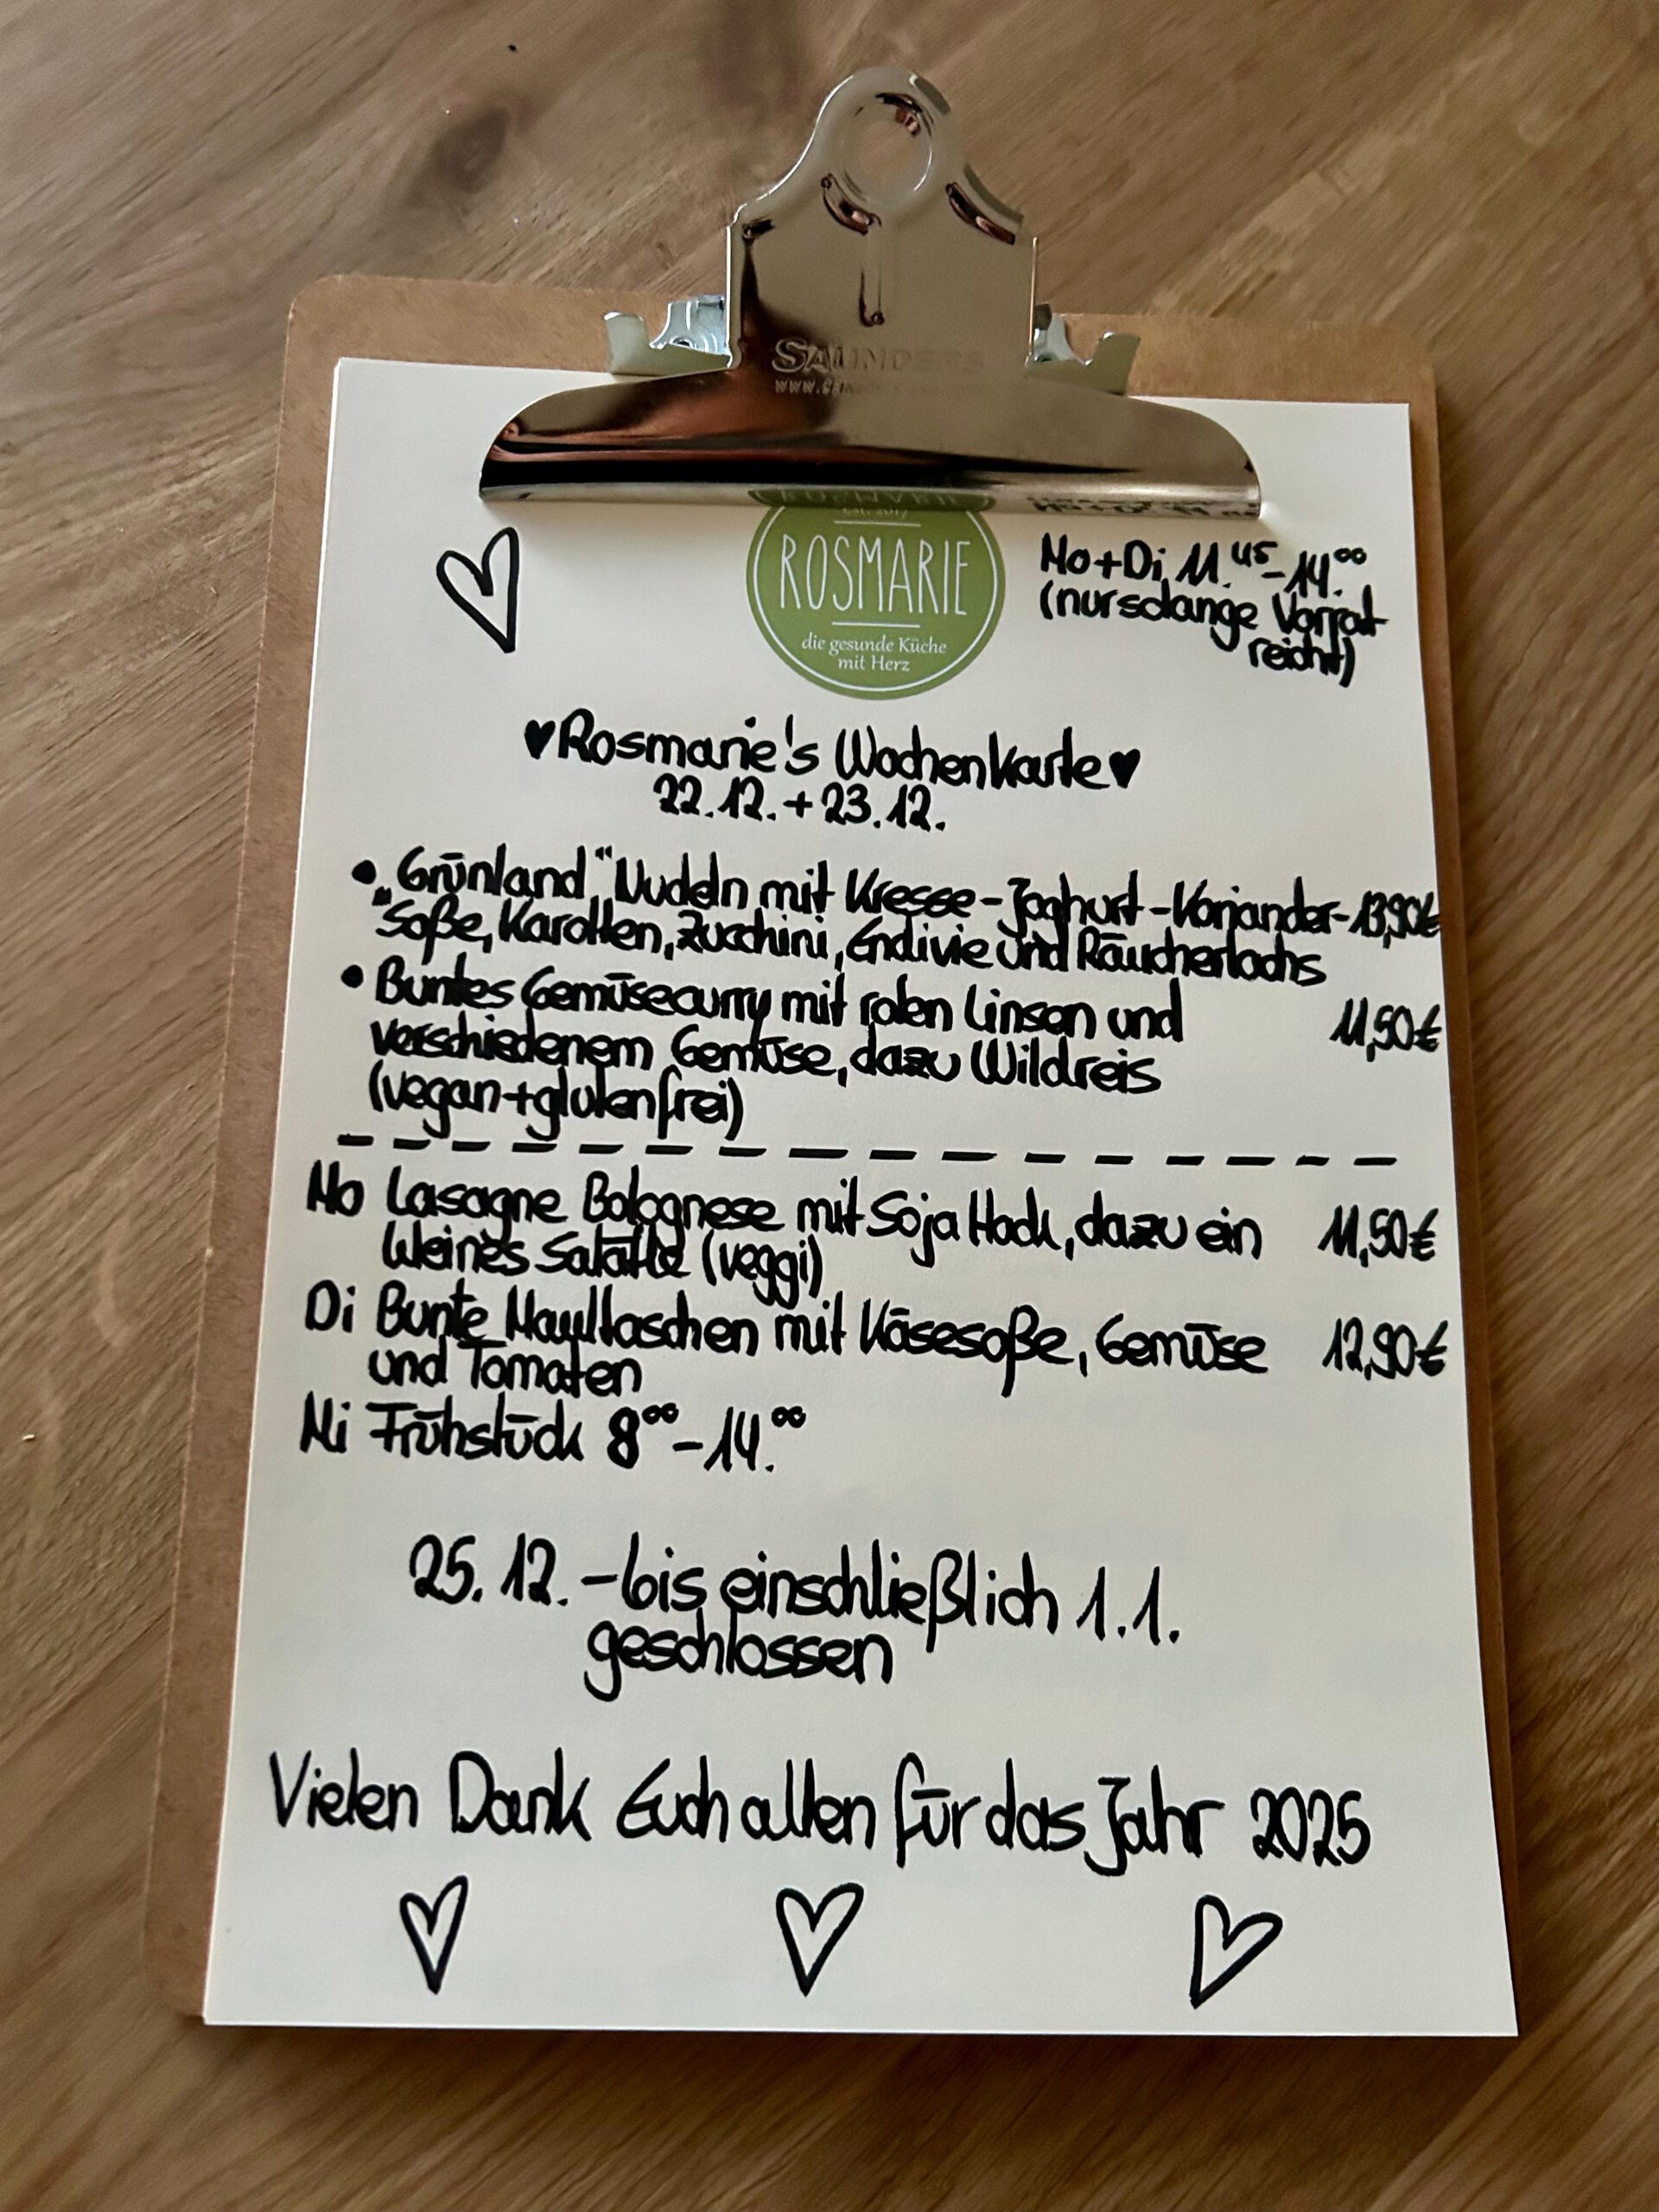 SAUNDERS
EST. 2017
ROSMARIE
die gesunde Küche
mit Herz
Mo+Di 11.45-14.00
(nur solange Vorrat
reicht)
♥Rosmarie's Wochenkarte♥
22.12. + 23.12.
• „Grünland" Nudeln mit Kresse-Joghurt-Koriander- 13,90€
Soße, Karotten, Zucchini, Endivie und Räucherlachs
• Buntes Gemüsecurry mit roten Linsen und 11,50€
verschiedenem Gemüse, dazu Wildreis
(vegan+glutenfrei)
Mo Lasagne Bolognese mit Soja Hack, dazu ein 11,50€
kleines Salätle (veggi)
Di Bunte Maultaschen mit Käsesoße, Gemüse 12,90€
und Tomaten
Mi Frühstück 8.00-14.00
25.12. - bis einschließlich 1.1.
geschlossen
Vielen Dank Euch allen für das Jahr 2025